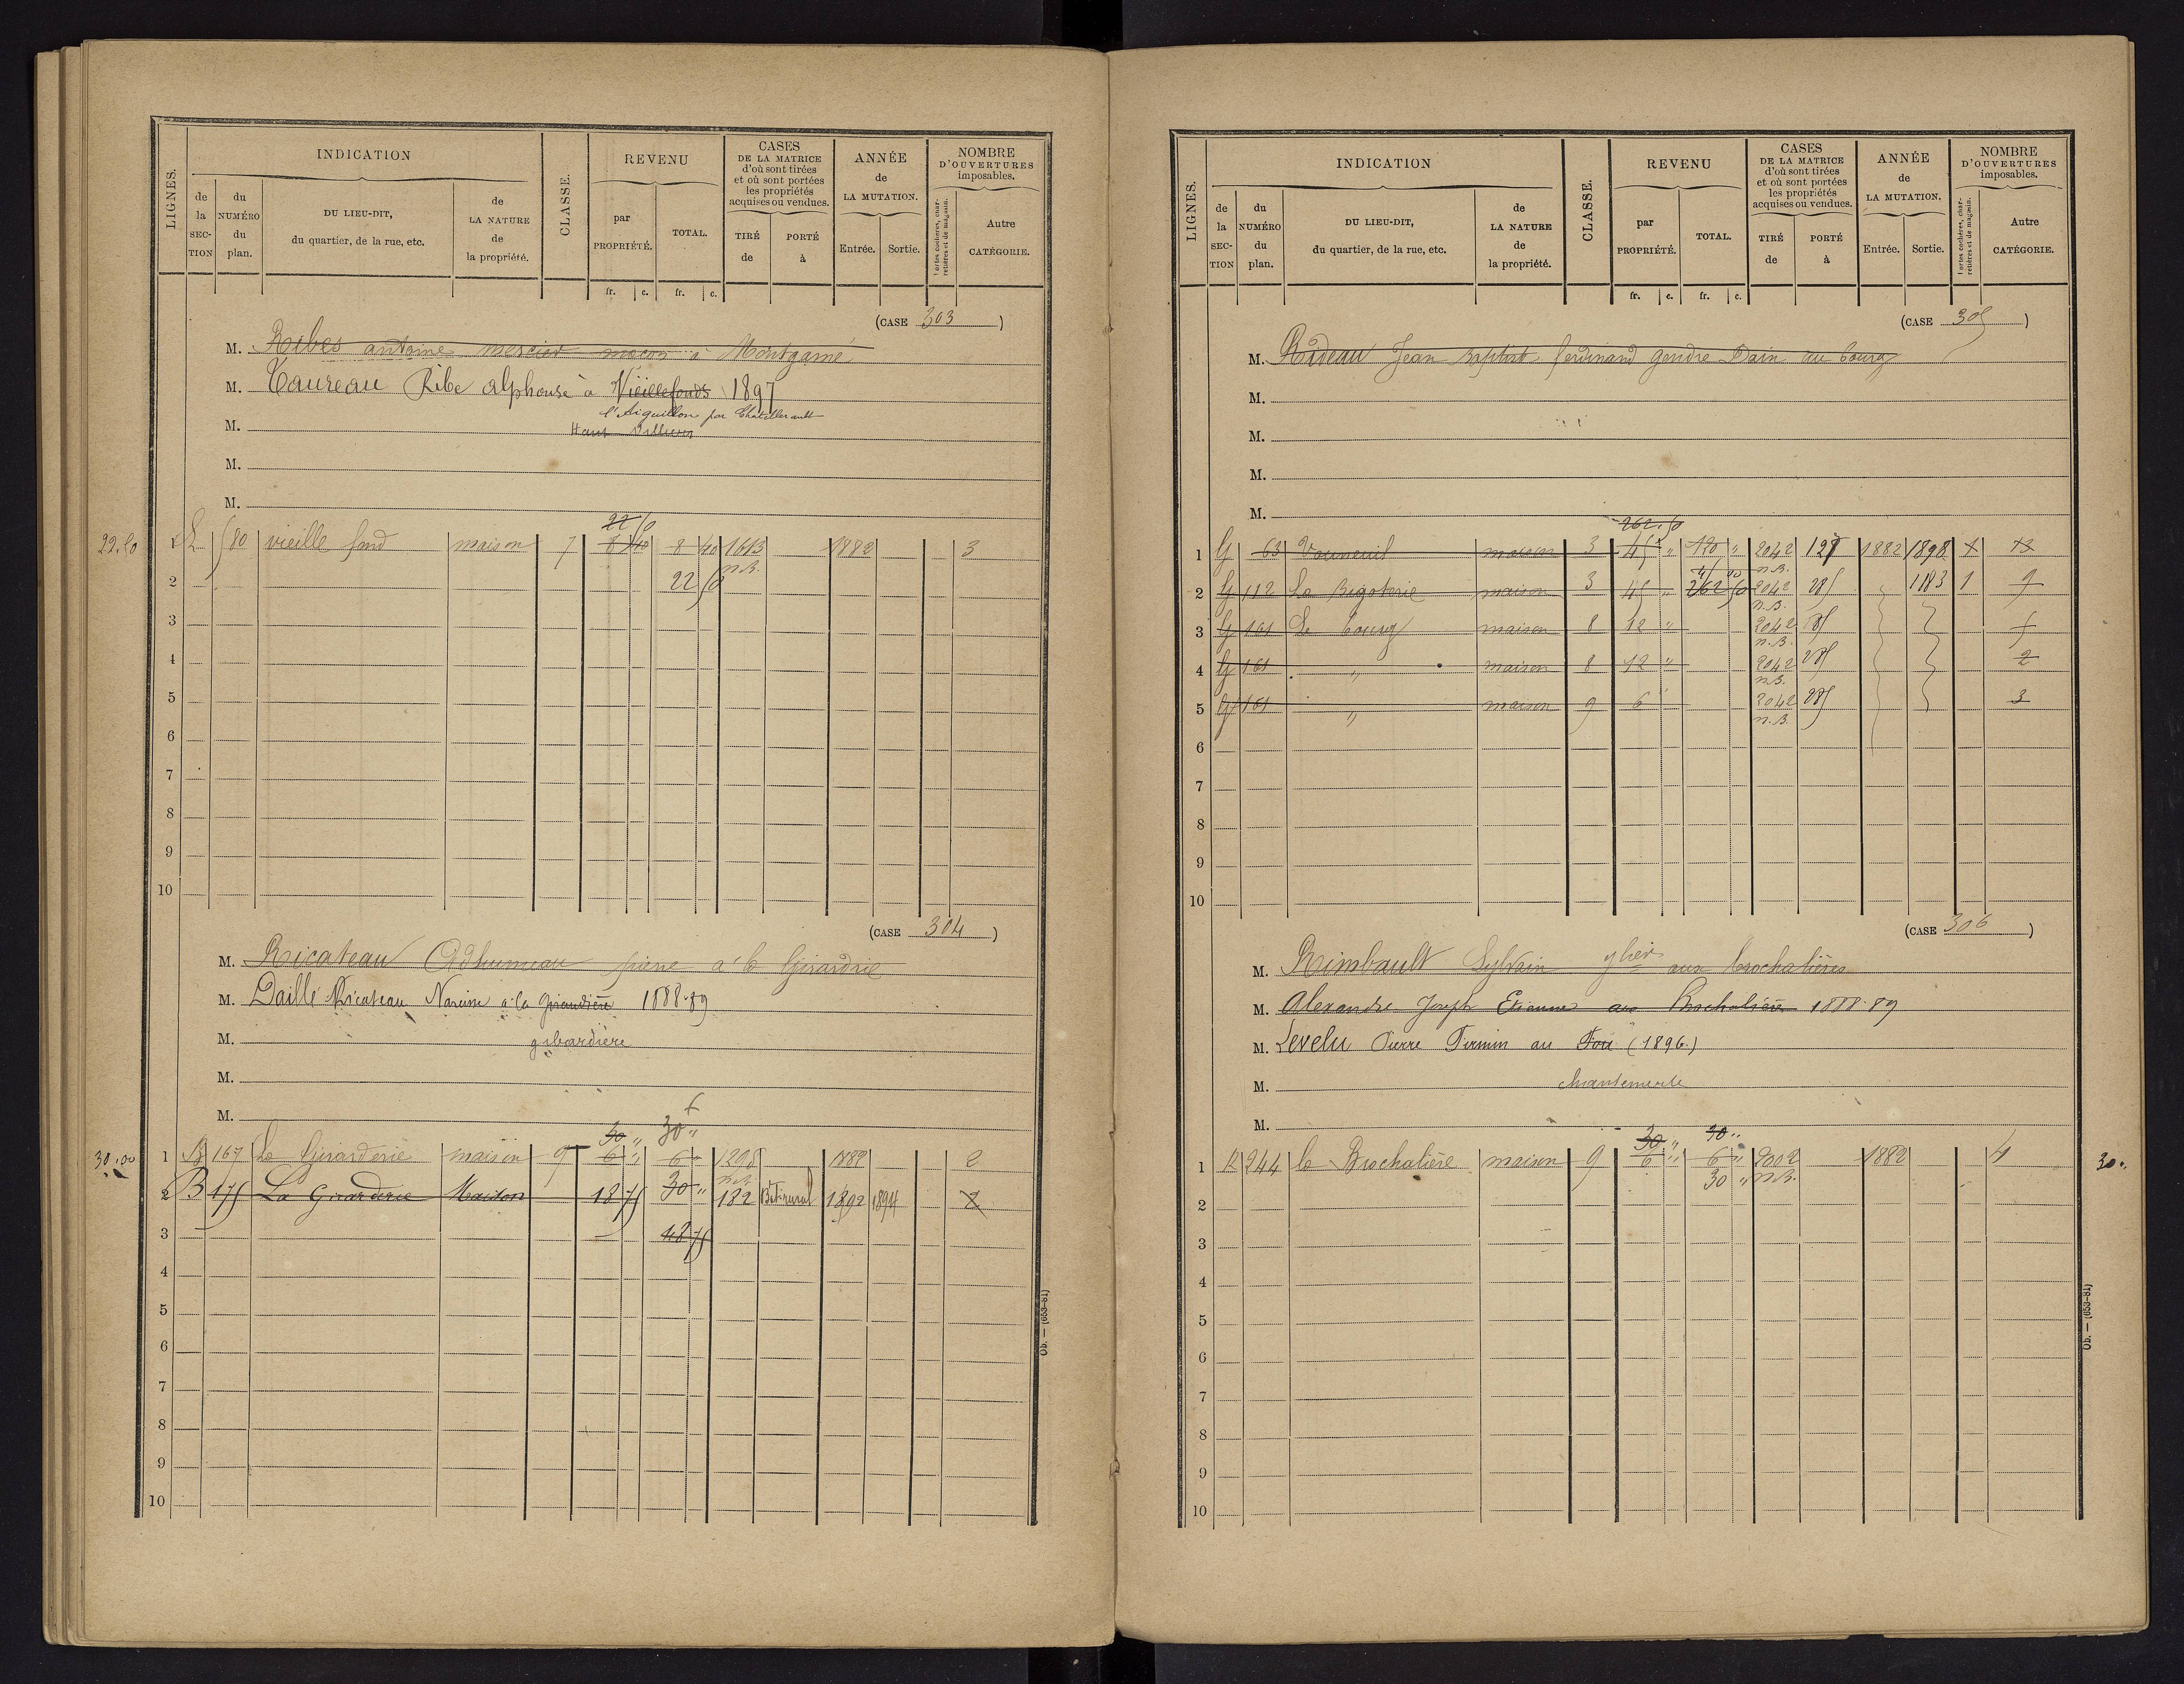 LIGNES. INDICATION CLASSE. REVENU CASES DE LA MATRICE d'où sont tirées et où sont portées les propriétés acquises ou vendues. ANNÉE de LA MUTATION. NOMBRE D'OUVERTURES imposables.
de la SECTION du NUMÉRO du plan. DU LIEU-DIT, du quartier, de la rue, etc. de LA NATURE de la propriété. par PROPRIÉTÉ. TOTAL. TIRÉ de PORTÉ à Entrée. Sortie. Portes cochères, charretières et de magasin. Autre CATÉGORIE.
fr. c. fr. c.
(CASE 303)
M. Ribes antoine mercier maçon à Montgamé
M. Taureau Ribe alphonse à Vieillefonds 1897
l'Aiguillon par Chatellerault
M. Haut
M.
M.
22 50
22.50 1 580 vieille fond maison 7 8 40 8 40 1613 1882 3
n.B.
2 22 50
3
4
5
6
7
8
9
10
(CASE 304)
M. Ricateau pierre à la Girardrie
M. Daillé Ricateau Narcisse à la 1888-89
M. gibardière
M.
M.
30 " 30 "
30.00 1 B 167 la Girarderie maison 9 6 " 6 " 1298 1882 2
n.B.
2 B 175 La Girarderie Maison 18 75 30 " 182 Bât. rural 1892 1894 2
3 48 75
4
5
6
7
8
9
10
Ob. — (653-81)
LIGNES. INDICATION CLASSE. REVENU CASES DE LA MATRICE d'où sont tirées et où sont portées les propriétés acquises ou vendues. ANNÉE de LA MUTATION. NOMBRE D'OUVERTURES imposables.
de la SECTION du NUMÉRO du plan. DU LIEU-DIT, du quartier, de la rue, etc. de LA NATURE de la propriété. par PROPRIÉTÉ. TOTAL. TIRÉ de PORTÉ à Entrée. Sortie. Portes cochères, charretières et de magasin. Autre CATÉGORIE.
fr. c. fr. c.
(CASE 305)
M. Rideau Jean Baptiste ferdinand gendre Dain au bourg
M.
M.
M.
M.
262.50
1 G 63 Vouneuil maison 3 45 " 120 " 2042 127 1882 1898 1 13
n.B.
2 G 112 La Bigoterie maison 3 45 " 262 50 2042 285 1183 1 9
n.B.
3 G 161 Le bourg maison 8 12 " 2042 285
n.B.
4 G 161 " maison 8 12 " 2042 285 2
n.B.
5 G 161 " maison 9 6 " 2042 285 3
n.B.
6
7
8
9
10
(CASE 306)
M. Rimbault Sylvain aux brochalières
M. Alexandre Joseph Etienne aux Brochalières 1888-89
M. Levelu Pierre Firmin au (1896.)
M. chantemerle
M.
30 " 30 "
1 244 la Brochalière maison 9 6 " 6 " 2002 1882 4 30 "
30 " n.B.
2
3
4
5
6
7
8
9
10
Ob. — (653-81)